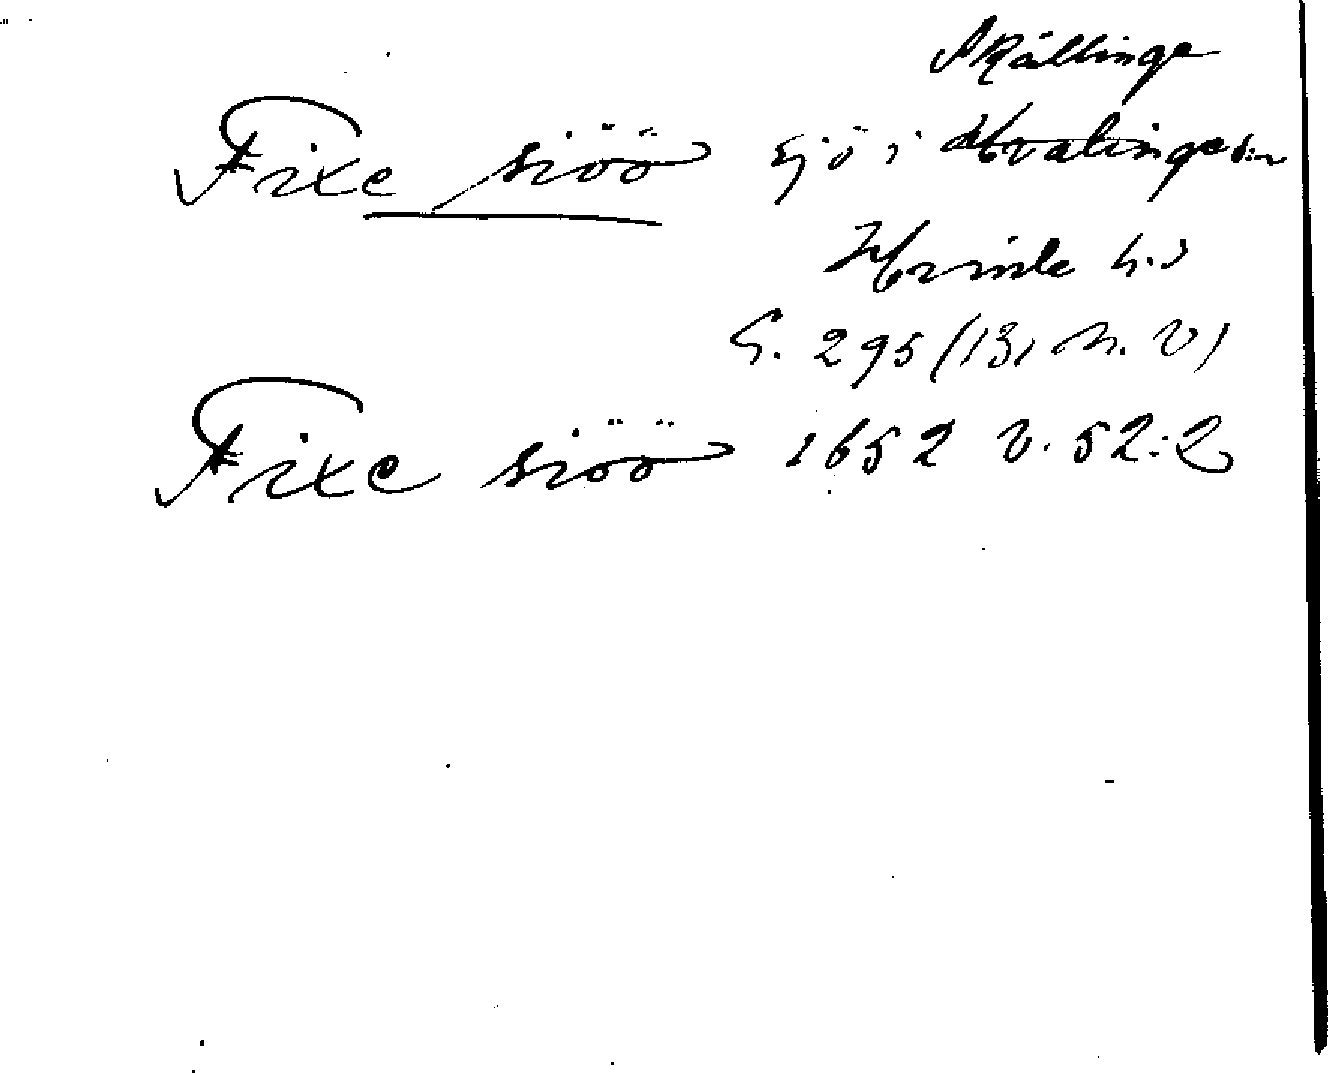 Skällinge
Fixe siöö sjö i Hvalinge s:n
Himle h.d
S. 295 (13, n. v)
Fixe siöö 1652 v. 52:2